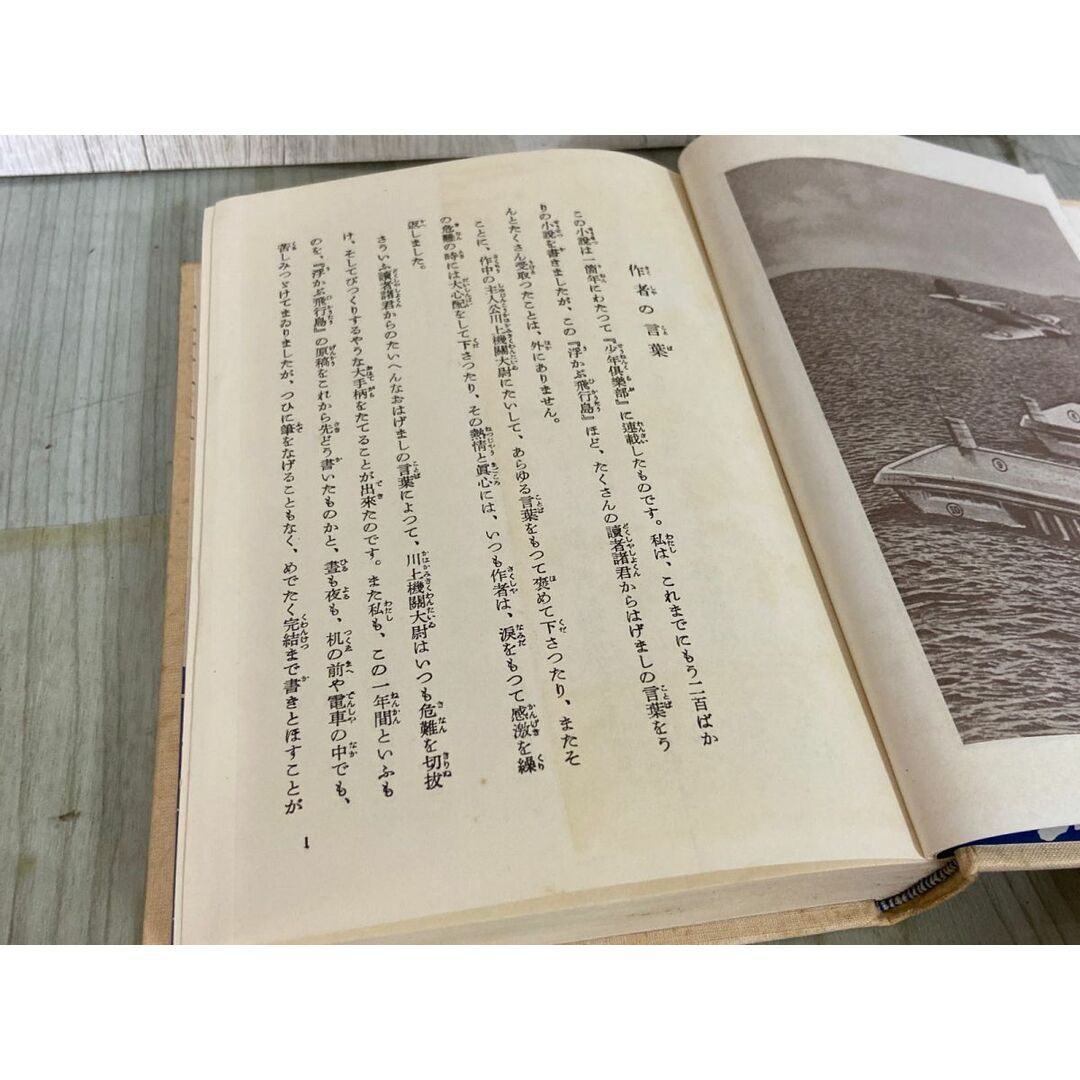 作者の言葉
この小說は一箇年にわたつて『少年俱樂部』に連載したものです。私は、これまでにもう二百ばか
りの小說を書きましたが、この『浮かぶ飛行島』ほど、たくさんの讀者諸君からはげましの言葉をう
んとたくさん受取つたことは、外にありません。
ことに、作中の主人公川上機關大尉にたいして、あらゆる言葉をもつて褒めて下さつたり、またそ
の危難の時には大心配をして下さつたり、その熱情と眞心には、いつも作者は、淚をもつて感激を繰
返しました。
さういふ讀者諸君からのたいへんなおはげましの言葉によつて、川上機關大尉はいつも危難を切拔
け、そしてびつくりするやうな大手柄をたてることが出來たのです。また私も、この一年間といふも
のを、『浮かぶ飛行島』の原稿をこれから先どう書いたものかと、晝も夜も、机の前や電車の中でも、
苦しみつゞけてまゐりましたが、つひに筆をなげることもなく、めでたく完結まで書きとほすことが
1
9
10